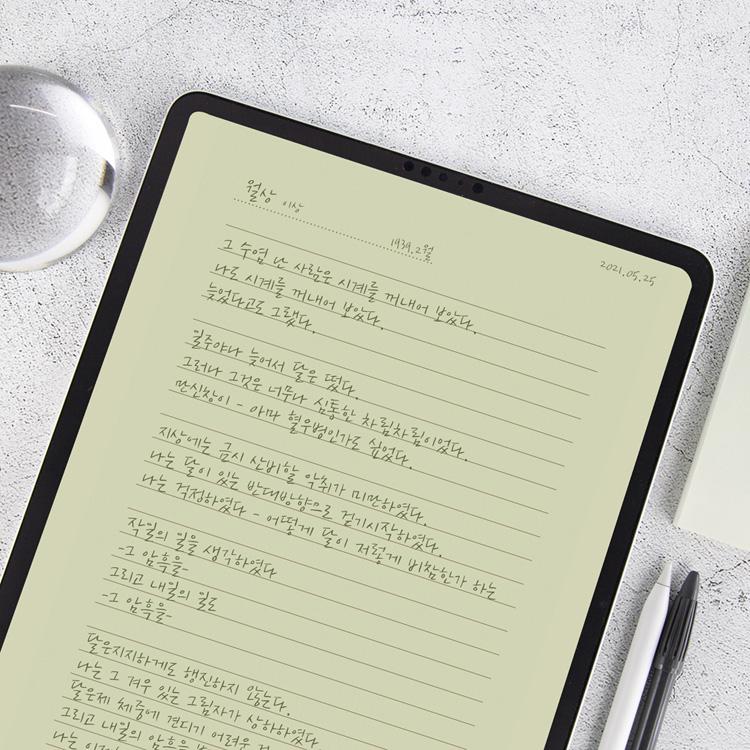 월상 이상
1939.2월
2021.05.25
그 수염 난 사람은 시계를 꺼내어 보았다.
나도 시계를 꺼내어 보았다.
늦었다고도 그랬다.
일주야나 늦어서 달은 떴다.
그러나 그것은 너무나 심통한 차림차림이었다.
만신창이 - 아마 혈우병인가도 싶었다.
지상에는 금시 산비할 악취가 미만하였다.
나는 달이 있는 반대방향으로 걷기시작하였다.
나는 걱정하였다 - 어떻게 달이 저렇게 비참한가 하는
작일의 일을 생각하였다
-그 암흑을-
그리고 내일의 일도
-그 암흑을-
달은지지하게도 행진하지 않는다.
나는 그 겨우 있는 그림자가 상하하였다.
달은제 체중에 견디기 어려운
그리고 내일의 암흑을
나는